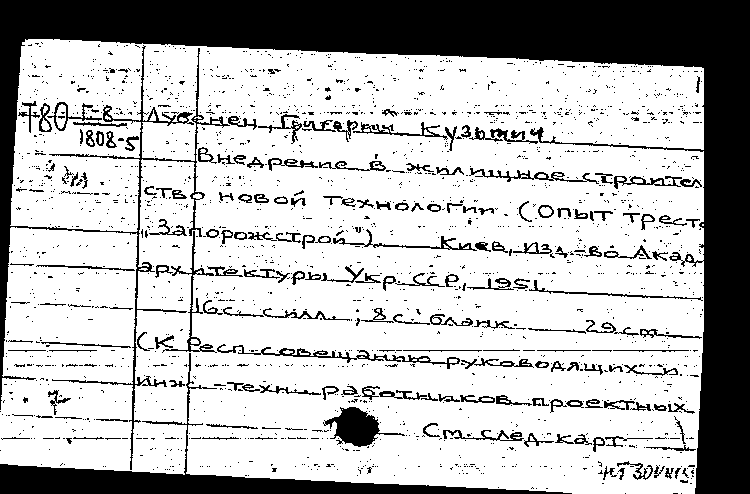 Г-8
1808-5
Лубенец, Григорий Кузьмич.
Внедрение в жилищное строител
ство новой технологии. (Опыт трест
"Запорожстрой"). Киев, Изд-во Акад.
архитектуры Укр. ССР, 1951.
16 с. с илл.; 8 с. бланк. 29 см.
(К Респ. совещанию руководящих и
инж.-техн. работников проектных
См. след. карт.